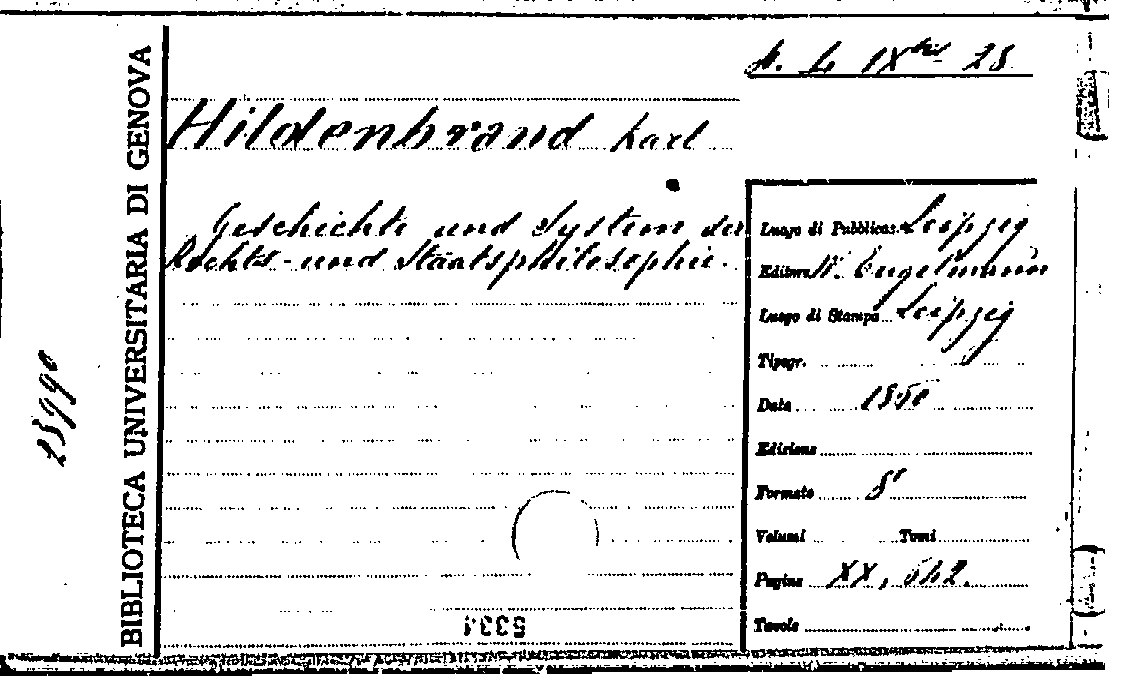 BIBLIOTECA UNIVERSITARIA DI GENOVA
N. L IXbis 28
Hildenbrand Karl
Geschichte und System der
Rechts- und Staatsphilosophie.
Luogo di Pubblicaz. Leipzig
Editore W. Engelmann
Luogo di Stampa Leipzig
Tipogr.
Data
Edizione
Formato 8°
Volumi Tomi
Pagine XX,
Tavole